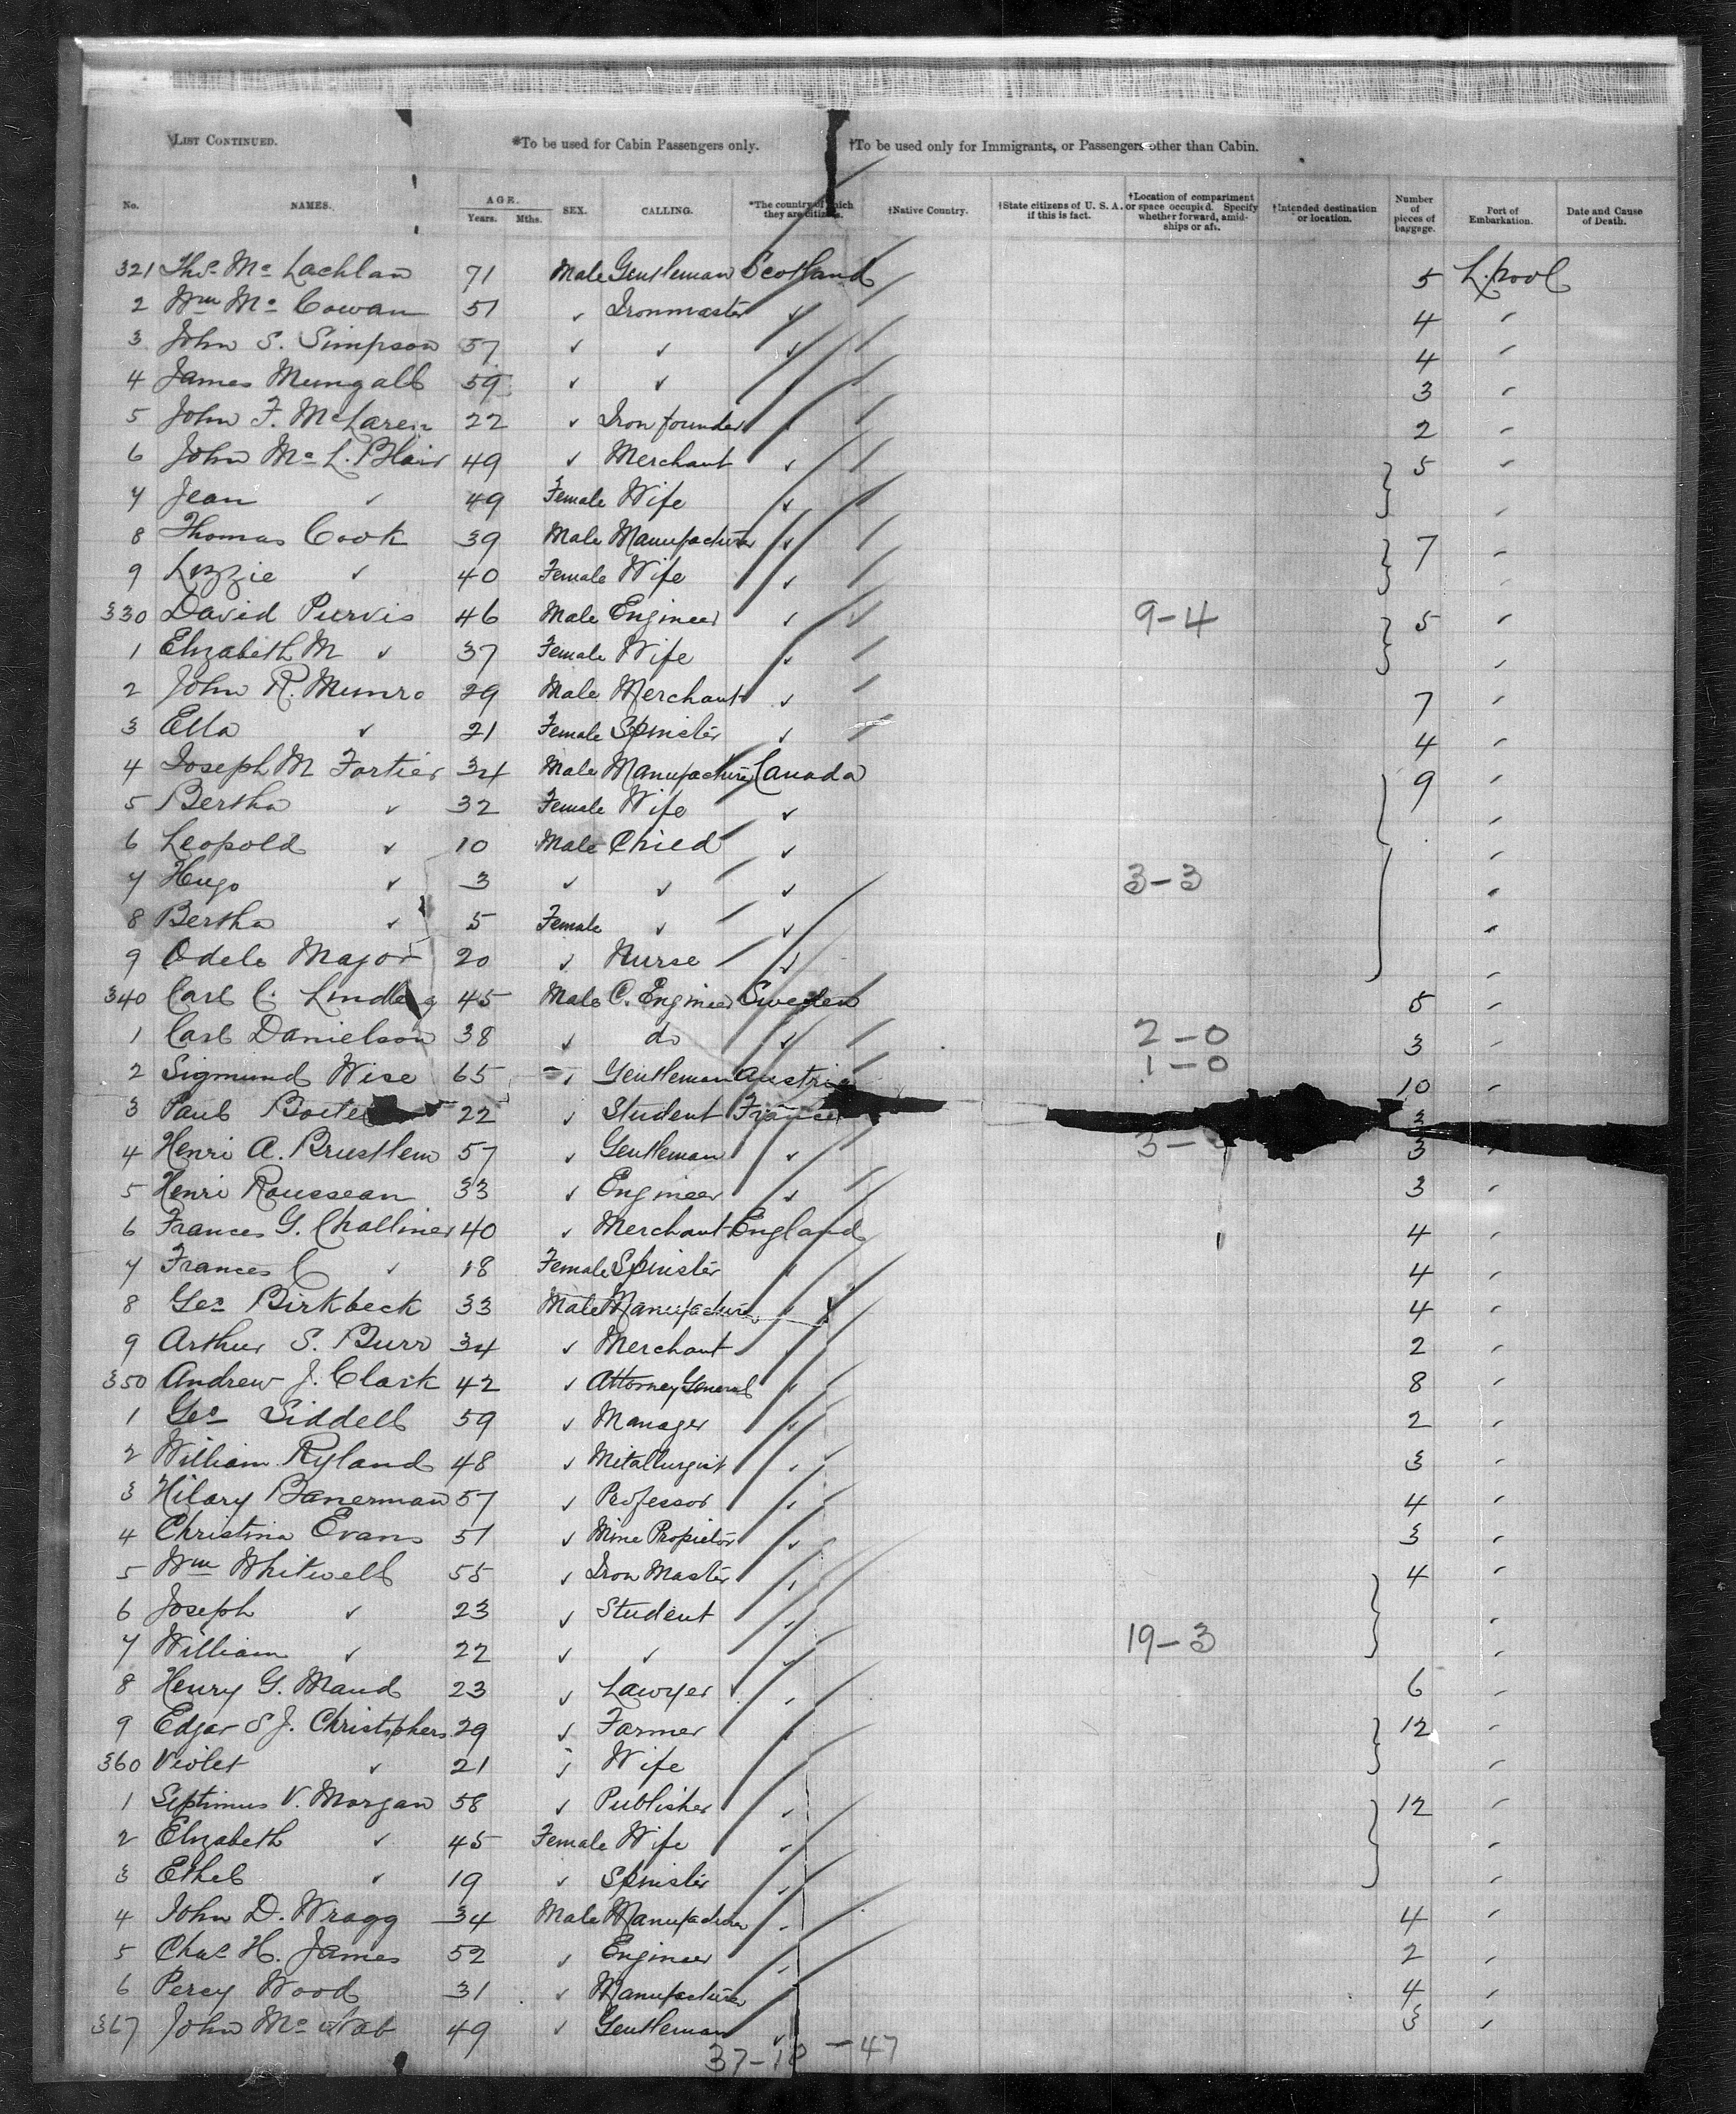 LIST CONTINUED. *To be used for Cabin Passengers only. †To be used only for Immigrants, or Passengers other than Cabin.
No. NAMES. AGE. Years. Mths. SEX. CALLING. *The country of which they are citizens. †Native Country. †State citizens of U. S. A. if this is fact. †Location of compartment or space occupied. Specify whether forward, amidships or aft. †Intended destination or location. Number of pieces of baggage. Port of Embarkation. Date and Cause of Death.
321 Thos Mc Lachlan 71 Male Gentleman Scotland 5 L.pool
2 Wm Mc Cowan 51 ✓ Ironmaster ✓ 4 ✓
3 John S. Simpson 57 ✓ ✓ ✓ 4 ✓
4 James Mungall 59 ✓ ✓ 3 ✓
5 John F. McLaren 22 ✓ Iron founder 2 ✓
6 John Mc L. Blair 49 ✓ Merchant ✓ 5 ✓
7 Jean ✓ 49 Female Wife ✓ ✓
8 Thomas Cook 39 Male Manufacturer ✓ 7 ✓
9 Lizzie ✓ 40 Female Wife ✓
330 David Purvis 46 Male Engineer ✓ 9-4 5 ✓
1 Elizabeth M ✓ 37 Female Wife ✓ ✓
2 John R. Munro 29 Male Merchant ✓ 7 ✓
3 Ella ✓ 21 Female Spinster ✓ 4 ✓
4 Joseph M Fortier 34 Male Manufacturer Canada 9 ✓
5 Bertha ✓ 32 Female Wife ✓ ✓
6 Leopold ✓ 10 Male Child ✓ ✓
7 Hugo ✓ 3 ✓ ✓ ✓ 3-3 ✓
8 Bertha ✓ 5 Female ✓ ✓ ✓
9 Odele Major 20 ✓ Nurse ✓ ✓
340 Carl C. 45 Male C. Engineer Sweden 5 ✓
1 Carl Danielson 38 ✓ do ✓ 2-0 3 ✓
2 Sigmund Wise 65 ✓ Gentleman Austria 1-0 10 ✓
3 Paul 22 ✓ Student France 3
4 Henri A. Brustlein 57 ✓ Gentleman ✓ 3- 3 ✓
5 Henri Rousseau 33 ✓ Engineer ✓ 3 ✓
6 Frances G. Challiner 40 ✓ Merchant England 4 ✓
7 Frances C ✓ 18 Female Spinster ✓ 4 ✓
8 Geo Birkbeck 33 Male Manufacturer ✓ 4 ✓
9 Arthur S. Burr 34 ✓ Merchant 2 ✓
350 Andrew J. Clark 42 ✓ Attorney General ✓ 8 ✓
1 Geo Siddell 59 ✓ Manager ✓ 2 ✓
2 William Ryland 48 ✓ Mitallurgist ✓ 3 ✓
3 Hilary Banerman 57 ✓ Professor ✓ 4 ✓
4 Christina Evans 51 ✓ Mine Propietor ✓ 3 ✓
5 Wm Whitwell 55 ✓ Iron Master ✓ 4 ✓
6 Joseph ✓ 23 ✓ Student ✓ ✓
7 William ✓ 22 ✓ ✓ ✓ 19-3 ✓
8 Henry G. Maud 23 ✓ Lawyer ✓ 6 ✓
9 Edgar S J. Christophers 29 ✓ Farmer ✓ 12 ✓
360 Violet ✓ 21 ✓ Wife ✓
1 Septimus V. Morgan 58 ✓ Publisher ✓ 12 ✓
2 Elizabeth ✓ 45 Female Wife ✓ ✓
3 Ethel ✓ 19 ✓ Spinster ✓ ✓
4 John D. Wragg 34 Male Manufacturer ✓ 4 ✓
5 Chas H. James 52 ✓ Engineer ✓ 2 ✓
6 Percy Wood 31 ✓ Manufacturer 4 ✓
367 John Mc Nab 49 ✓ Gentleman ✓ 3 ✓
37-10 -47